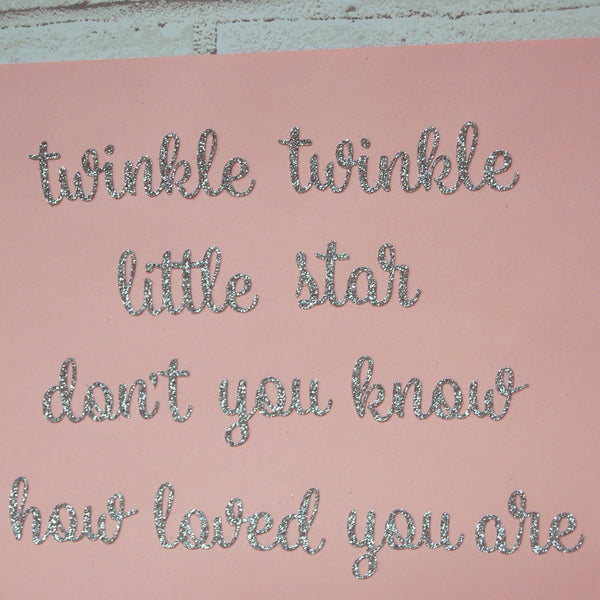 twinkle twinkle
little star
don't you know
how loved you are